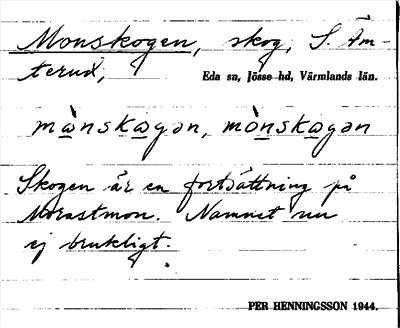 Monskogen, skog, S. Äm-
terud, Eda sn, Jösse hd, Värmlands län.
månskogən, mònskogən
Skogen är en fortsättning på
Morastmon. Namnet nu
ej brukligt.
PER HENNINGSSON 1944.